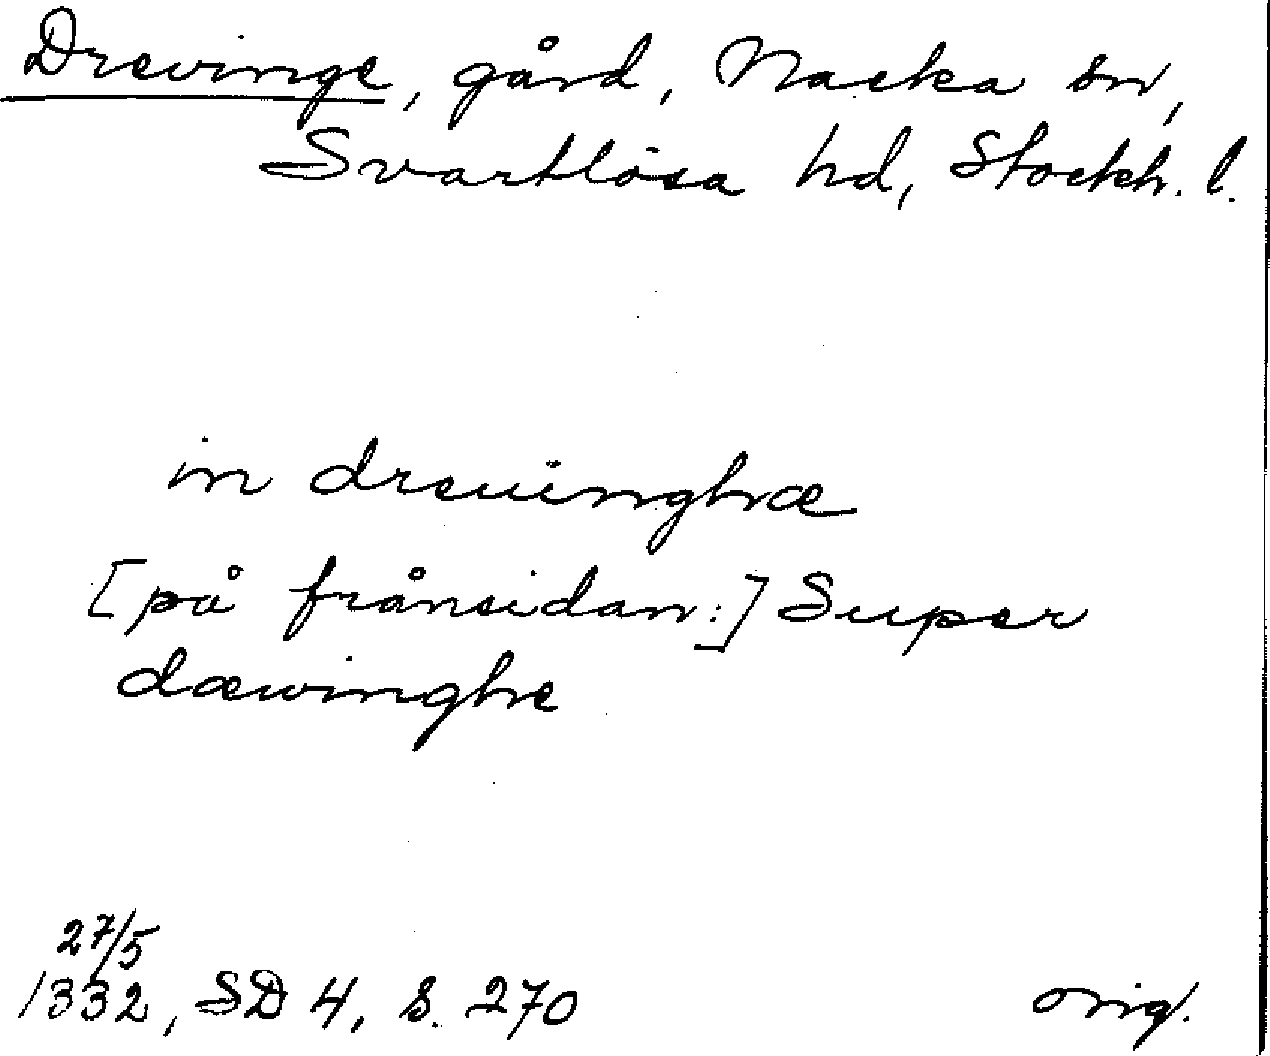 Drevinge, gård, Nacka sn,
Svartlösa hd, Stockh. l.
in dreuinghæ
[på frånsidan:] Super
dæwinghe
27/5
1332, SD 4, s. 270 orig.